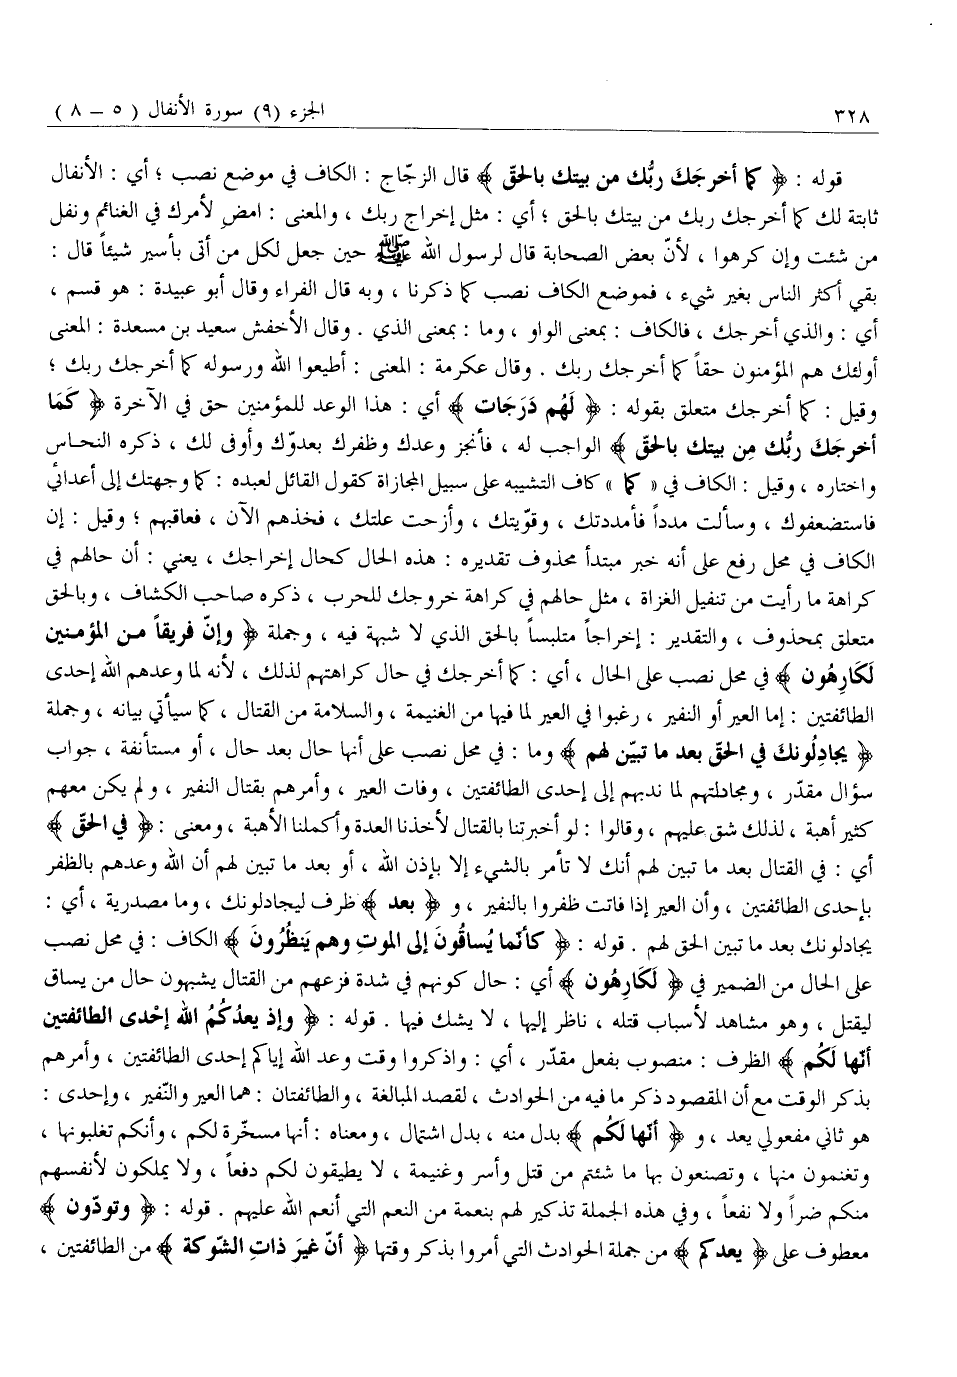 ٣٢٨ الجزء (٩) سورة الأنفال ( ٥ – ٨ )
قوله : ﴿ كما أخرجَكَ ربُّك من بيتك بالحقّ ﴾ قال الزجّاج : الكاف في موضع نصب ؛ أي : الأنفال
ثابتة لك كما أخرجك ربك من بيتك بالحق ؛ أي : مثل إخراج ربك ، والمعنى : امضِ لأمرك في الغنائم ونفل
من شئت وإن كرهوا ، لأنّ بعض الصحابة قال لرسول الله ﷺ حين جعل لكل من أتى بأسير شيئاً قال :
بقي أكثر الناس بغير شيء ، فموضع الكاف نصب كما ذكرنا ، وبه قال الفراء وقال أبو عبيدة : هو قسم ،
أي : والذي أخرجك ، فالكاف : بمعنى الواو ، وما : بمعنى الذي . وقال الأخفش سعيد بن مسعدة : المعنى
أولئك هم المؤمنون حقاً كما أخرجك ربك . وقال عكرمة : المعنى : أطيعوا الله ورسوله كما أخرجك ربك ؛
وقيل : كما أخرجك متعلق بقوله : ﴿ لَهُم دَرَجَات ﴾ أي : هذا الوعد للمؤمنين حق في الآخرة ﴿ كَمَا
أخرجَكَ ربُّك مِن بيتك بالحقّ ﴾ الواجب له ، فأنجز وعدك وظفرك بعدوّك وأوفى لك ، ذكره النحاس
واختاره ، وقيل : الكاف في « كما » كاف التشبيه على سبيل المجازاة كقول القائل لعبده : كما وجهتك إلى أعدائي
فاستضعفوك ، وسألت مدداً فأمددتك ، وقوّيتك ، وأزحت علتك ، فخذهم الآن ، فعاقبهم ؛ وقيل : إن
الكاف في محل رفع على أنه خبر مبتدأ محذوف تقديره : هذه الحال كحال إخراجك ، يعني : أن حالهم في
كراهة ما رأيت من تنفيل الغزاة ، مثل حالهم في كراهة خروجك للحرب ، ذكره صاحب الكشاف ، وبالحق
متعلق بمحذوف ، والتقدير : إخراجاً متلبساً بالحق الذي لا شبهة فيه ، وجملة ﴿ وإنّ فريقاً من المؤمنين
لَكارِهُون ﴾ في محل نصب على الحال ، أي : كما أخرجك في حال كراهتهم لذلك ، لأنه لما وعدهم الله إحدى
الطائفتين : إما العير أو النفير ، رغبوا في العير لما فيها من الغنيمة ، والسلامة من القتال ، كما سيأتي بيانه ، وجملة
﴿ يجادِلُونكَ في الحقّ بعد ما تبيّن لهم ﴾ وما : في محل نصب على أنها حال بعد حال ، أو مستأنفة ، جواب
سؤال مقدّر ، ومجادلتهم لما ندبهم إلى إحدى الطائفتين ، وفات العير ، وأمرهم بقتال النفير ، ولم يكن معهم
كثير أهبة ، لذلك شق عليهم ، وقالوا : لو أخبرتنا بالقتال لأخذنا العدة وأكملنا الأهبة ، ومعنى : ﴿ في الحقّ ﴾
أي : في القتال بعد ما تبين لهم أنك لا تأمر بالشيء إلا بإذن الله ، أو بعد ما تبين لهم أن الله وعدهم بالظفر
بإحدى الطائفتين ، وأن العير إذا فاتت ظفروا بالنفير ، و ﴿ بعد ﴾ ظرف ليجادلونك ، وما مصدرية ، أي :
يجادلونك بعد ما تبين الحق لهم . قوله : ﴿ كأنّما يُساقُونَ إلى الموتِ وهم يَنظُرُونَ ﴾ الكاف : في محل نصب
على الحال من الضمير في ﴿ لَكارِهُون ﴾ أي : حال كونهم في شدة فزعهم من القتال يشبهون حال من يساق
ليقتل ، وهو مشاهد لأسباب قتله ، ناظر إليها ، لا يشك فيها . قوله : ﴿ وإذ يعدُكُمُ الله إحْدى الطائفتين
أنّها لَكُم ﴾ الظرف : منصوب بفعل مقدّر ، أي : واذكروا وقت وعد الله إياكم إحدى الطائفتين ، وأمرهم
بذكر الوقت مع أن المقصود ذكر ما فيه من الحوادث ، لقصد المبالغة ، والطائفتان : هما العير والنّفير ، وإحدى :
هو ثاني مفعولي يعد ، و ﴿ أنّها لَكُم ﴾ بدل منه ، بدل اشتمال ، ومعناه : أنها مسخّرة لكم ، وأنكم تغلبونها ،
وتغنمون منها ، وتصنعون بها ما شئتم من قتل وأسر وغنيمة ، لا يطيقون لكم دفعاً ، ولا يملكون لأنفسهم
منكم ضراً ولا نفعاً ، وفي هذه الجملة تذكير لهم بنعمة من النعم التي أنعم الله عليهم . قوله : ﴿ وتودّون ﴾
معطوف على ﴿ يعدكم ﴾ من جملة الحوادث التي أمروا بذكر وقتها ﴿ أنّ غيرَ ذاتِ الشّوكة ﴾ من الطائفتين ،